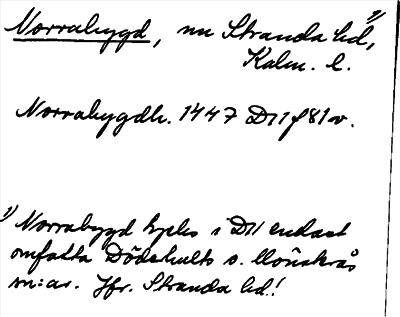 Norrabygd, nu Stranda hd,¹⁾
Kalm. l.
Norrabygdh. 1447 D11 f 81v.
¹⁾ Norrabygd i D11 endast
omfatta Döderhults o. Mönsterås
sn:ar. Jfr. Stranda hd.!